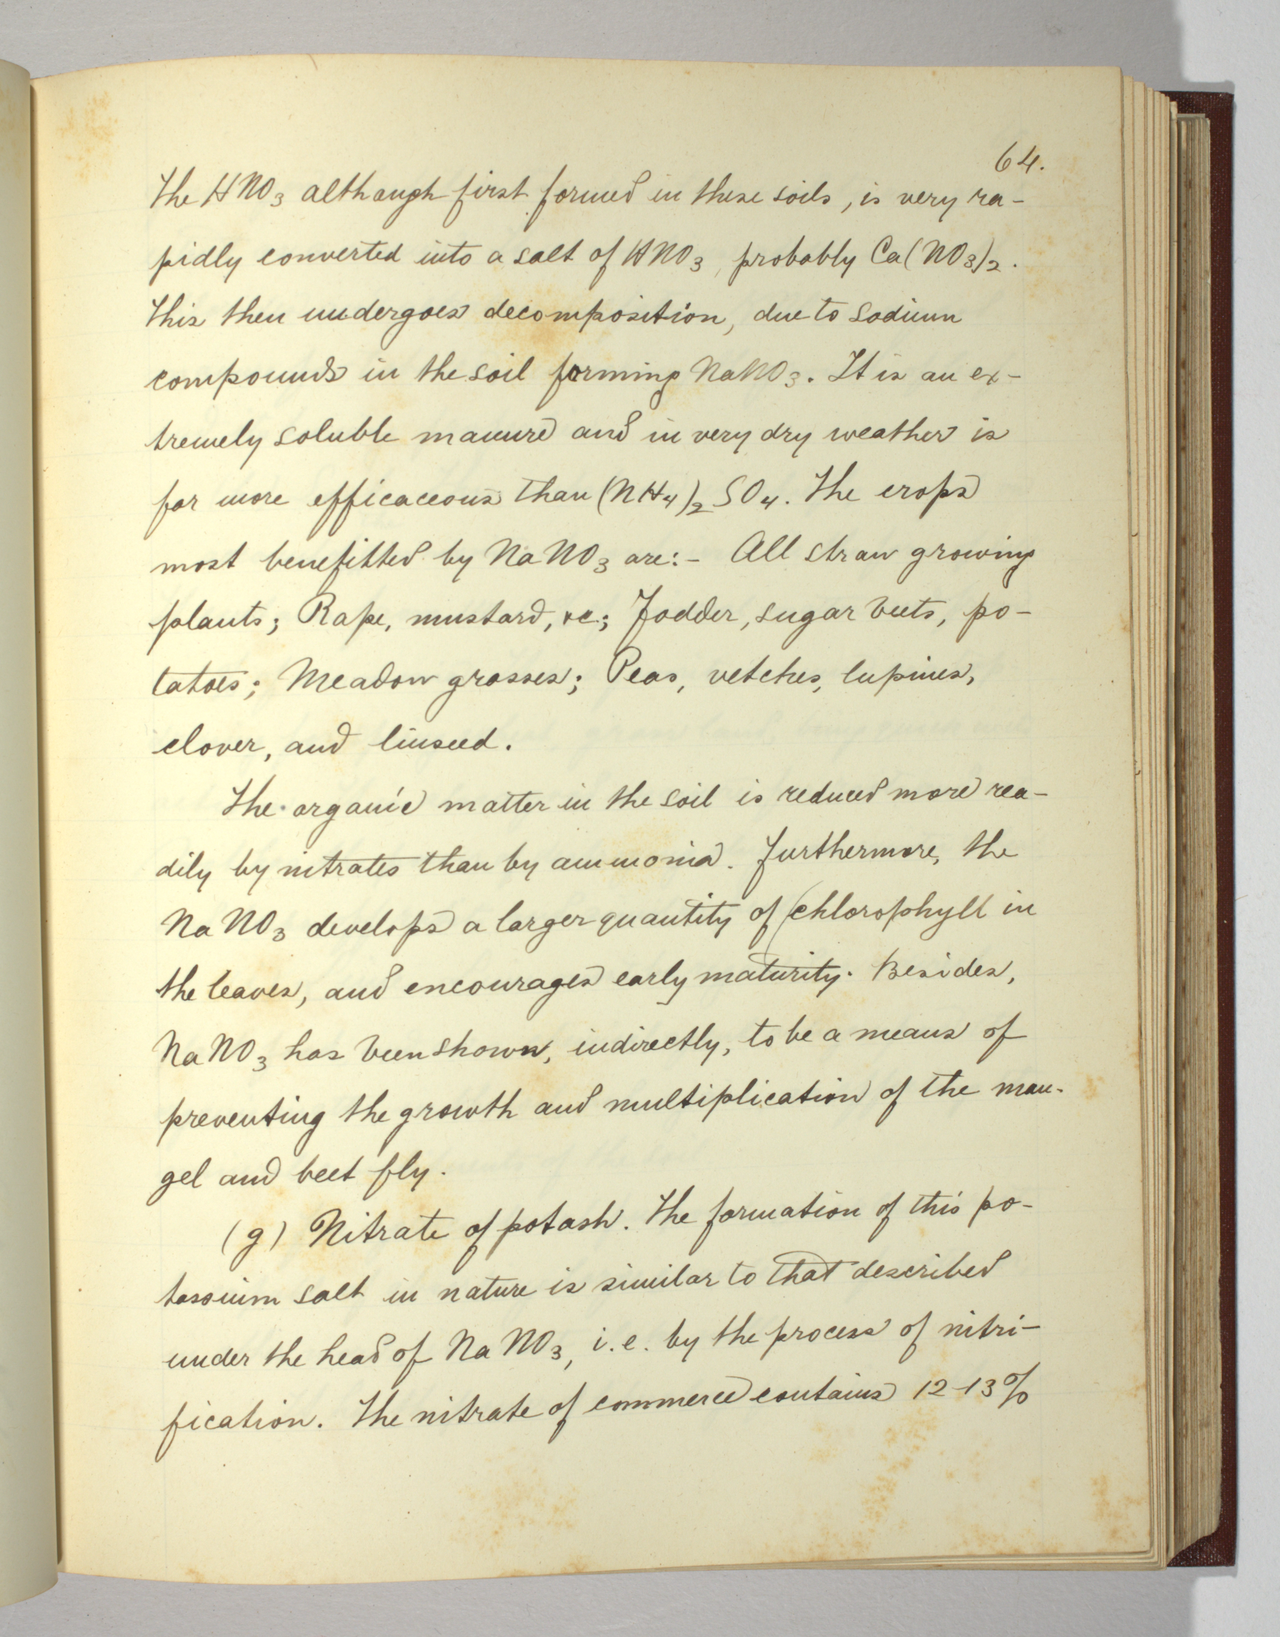 64.
The HNO3 although first formed in these soils, is very ra-
pidly converted into a salt of HNO3, probably Ca(NO3)2.
This then undergoes decomposition, due to sodium
compounds in the soil forming NaNO3. It is an ex-
tremely soluble manure and in very dry weather is
far more efficaceous than (NH4)2SO4. The crops
most benefitted by NaNO3 are:- All straw growing
plants; Rape, mustard, &c; Fodder, sugar beets, po-
tatoes; Meadow grasses; Peas, vetches, lupines,
clover, and linseed.
The organic matter in the soil is reduced more rea-
dily by nitrates than by ammonia. Furthermore, the
NaNO3 develops a larger quantity of (chlorophyll in
the leaves, and encourages early maturity. Besides,
NaNO3 has been shown, indirectly, to be a means of
preventing the growth and multiplication of the man-
gel and beet fly.
(g) Nitrate of potash. The formation of this po-
tassium salt in nature is similar to that described
under the head of NaNO3, i.e. by the process of nitri-
fication. The nitrate of commerce contains 12-13%